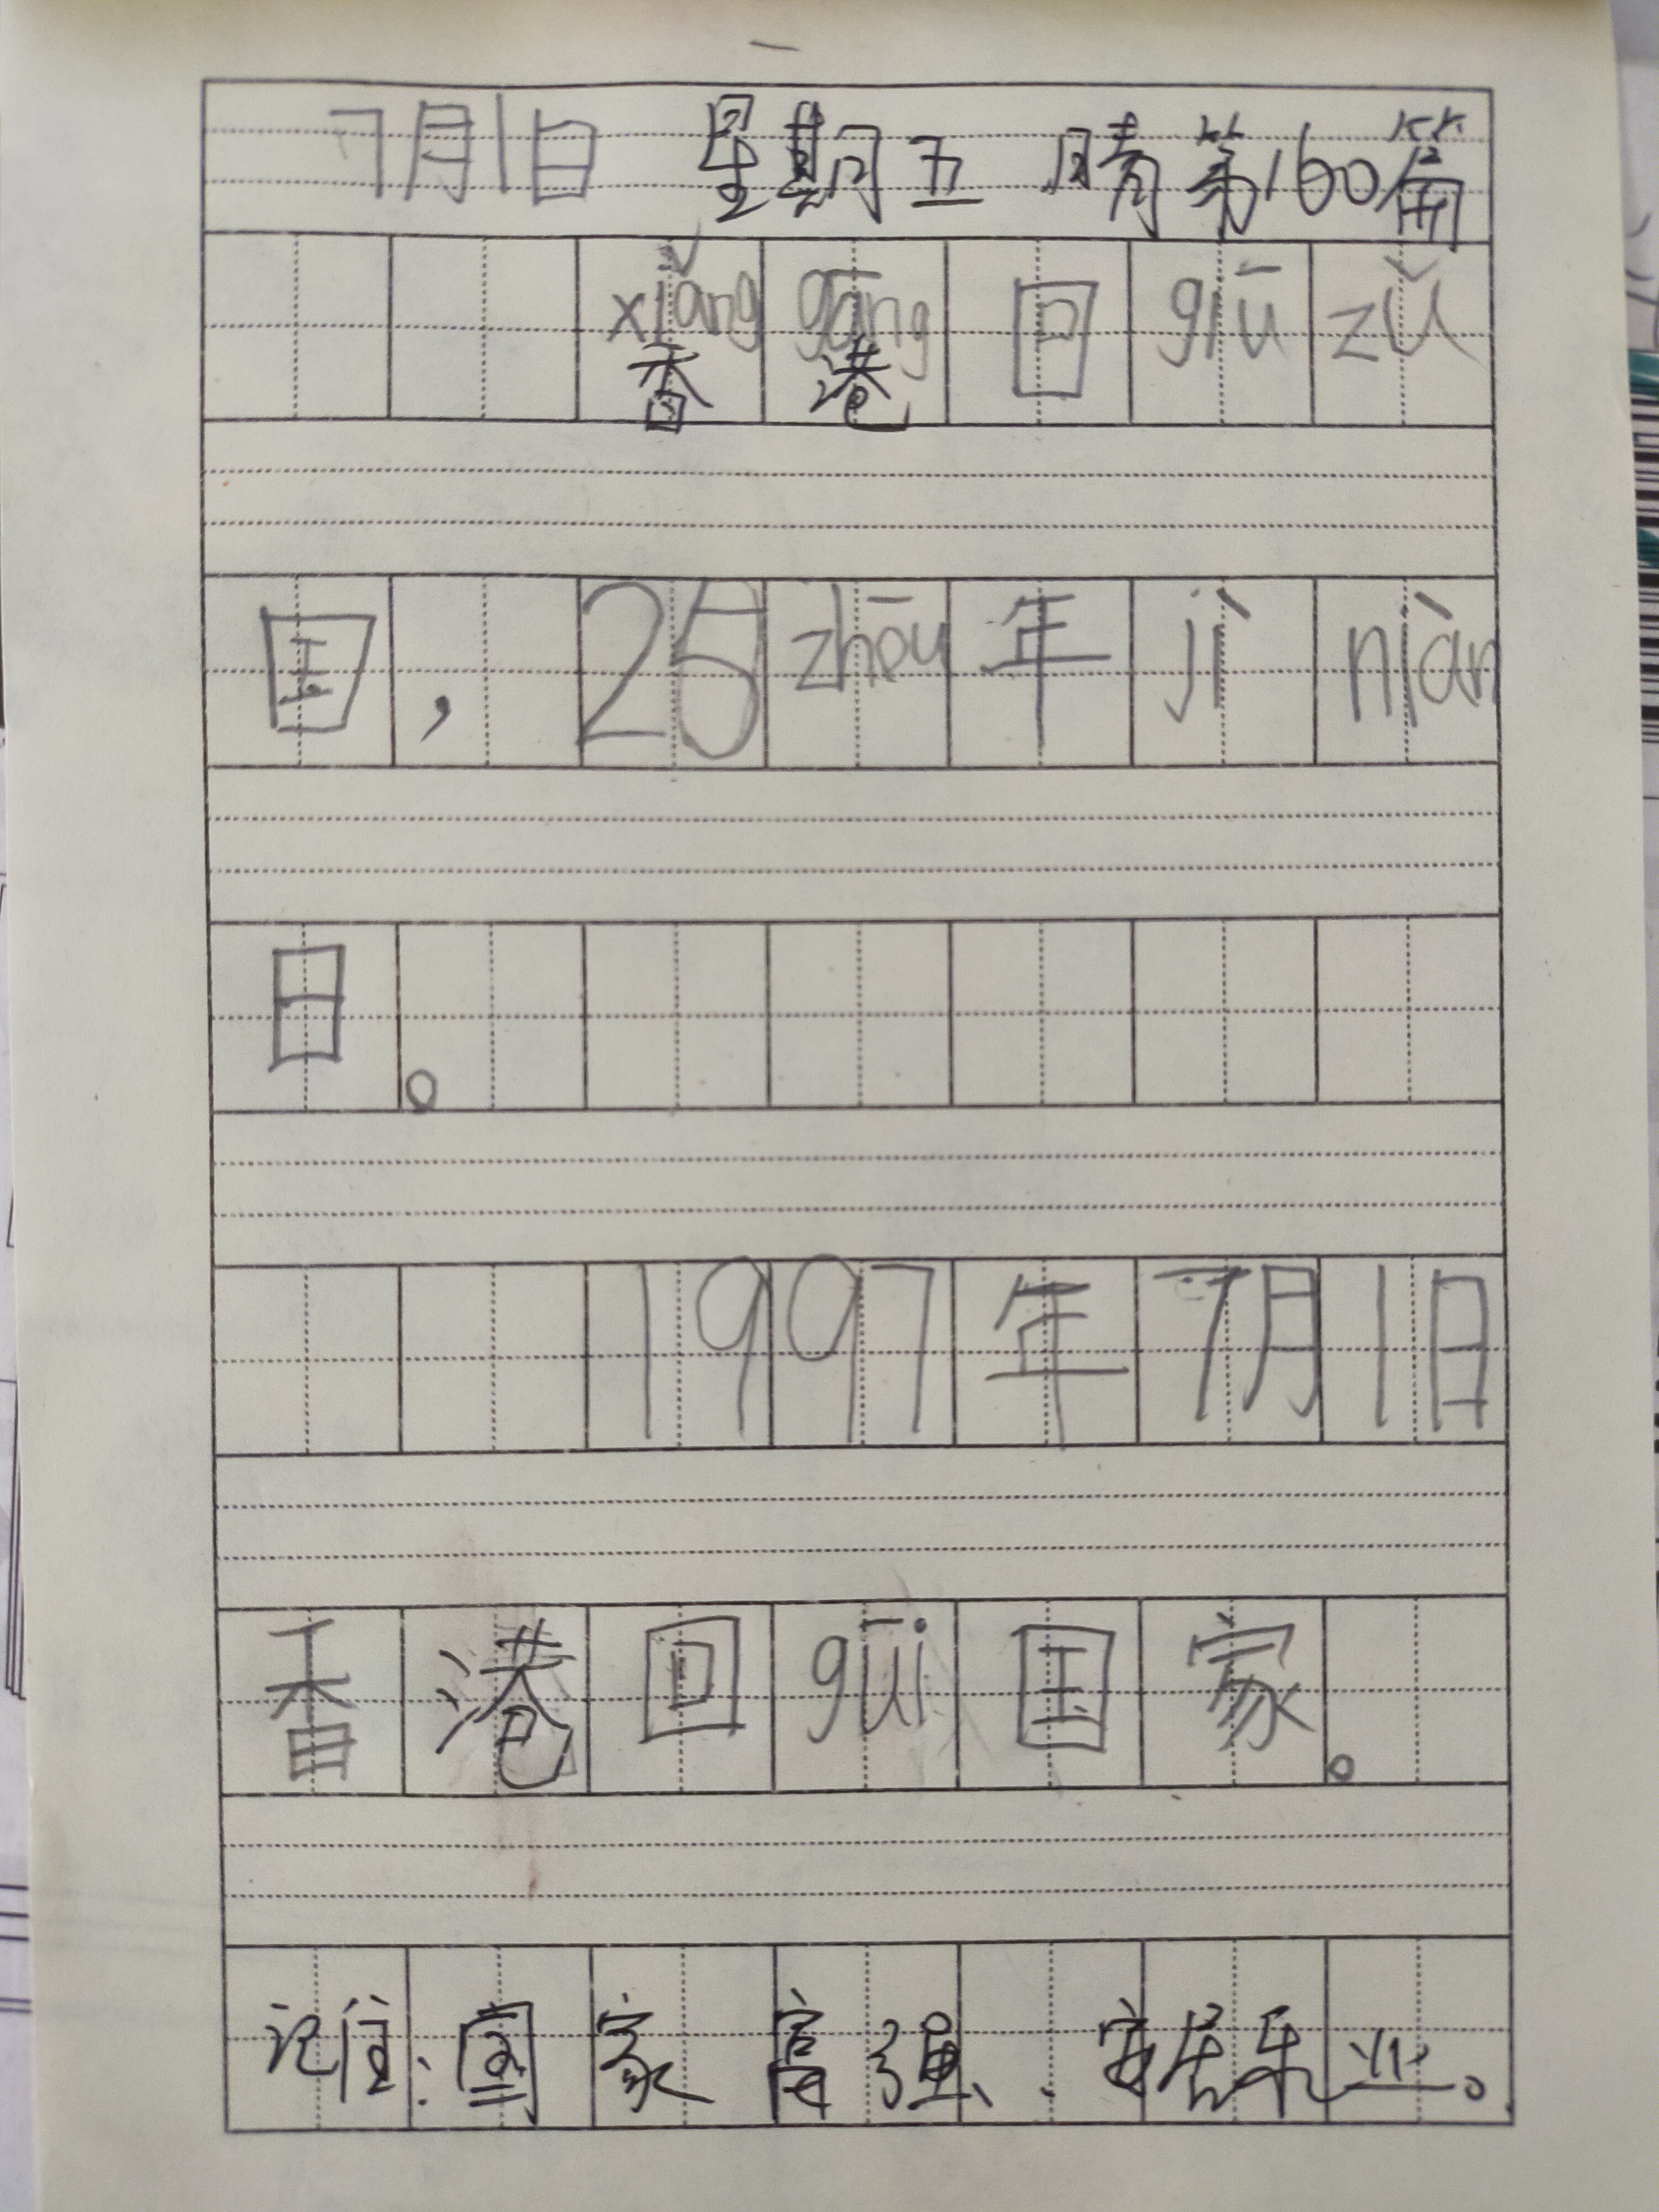 7月1日 星期五 晴 第160篇
xiǎng gāng 回 giū zǔ
香 港
国，25 zhōu 年 jì niàn
日。
1997年7月1日
香港回 gūi 国家。
记住：国家富强、安居乐业。